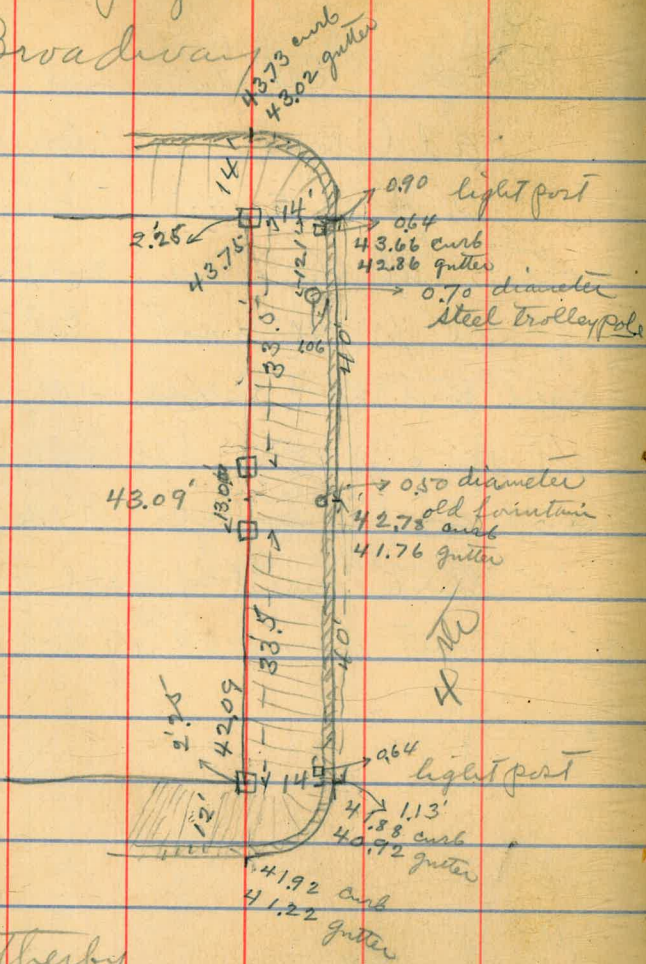 Broadway
43.73 curb
43.02 gutter
14'
0.90 light post
14'
0.64
2.25'
43.66 curb
43.75
42.86 gutter
12'
0.70 diameter
steel trolley pole
33.5'
1.06
40'
0.50 diameter
43.09'
13.00
old fountain
42.78 curb
41.76 gutter
33.5
40'
4th
2'.25
42.09
0.64
light post
14'
1.13'
12'
41.88 curb
40.92 gutter
41.92 curb
41.22 gutter